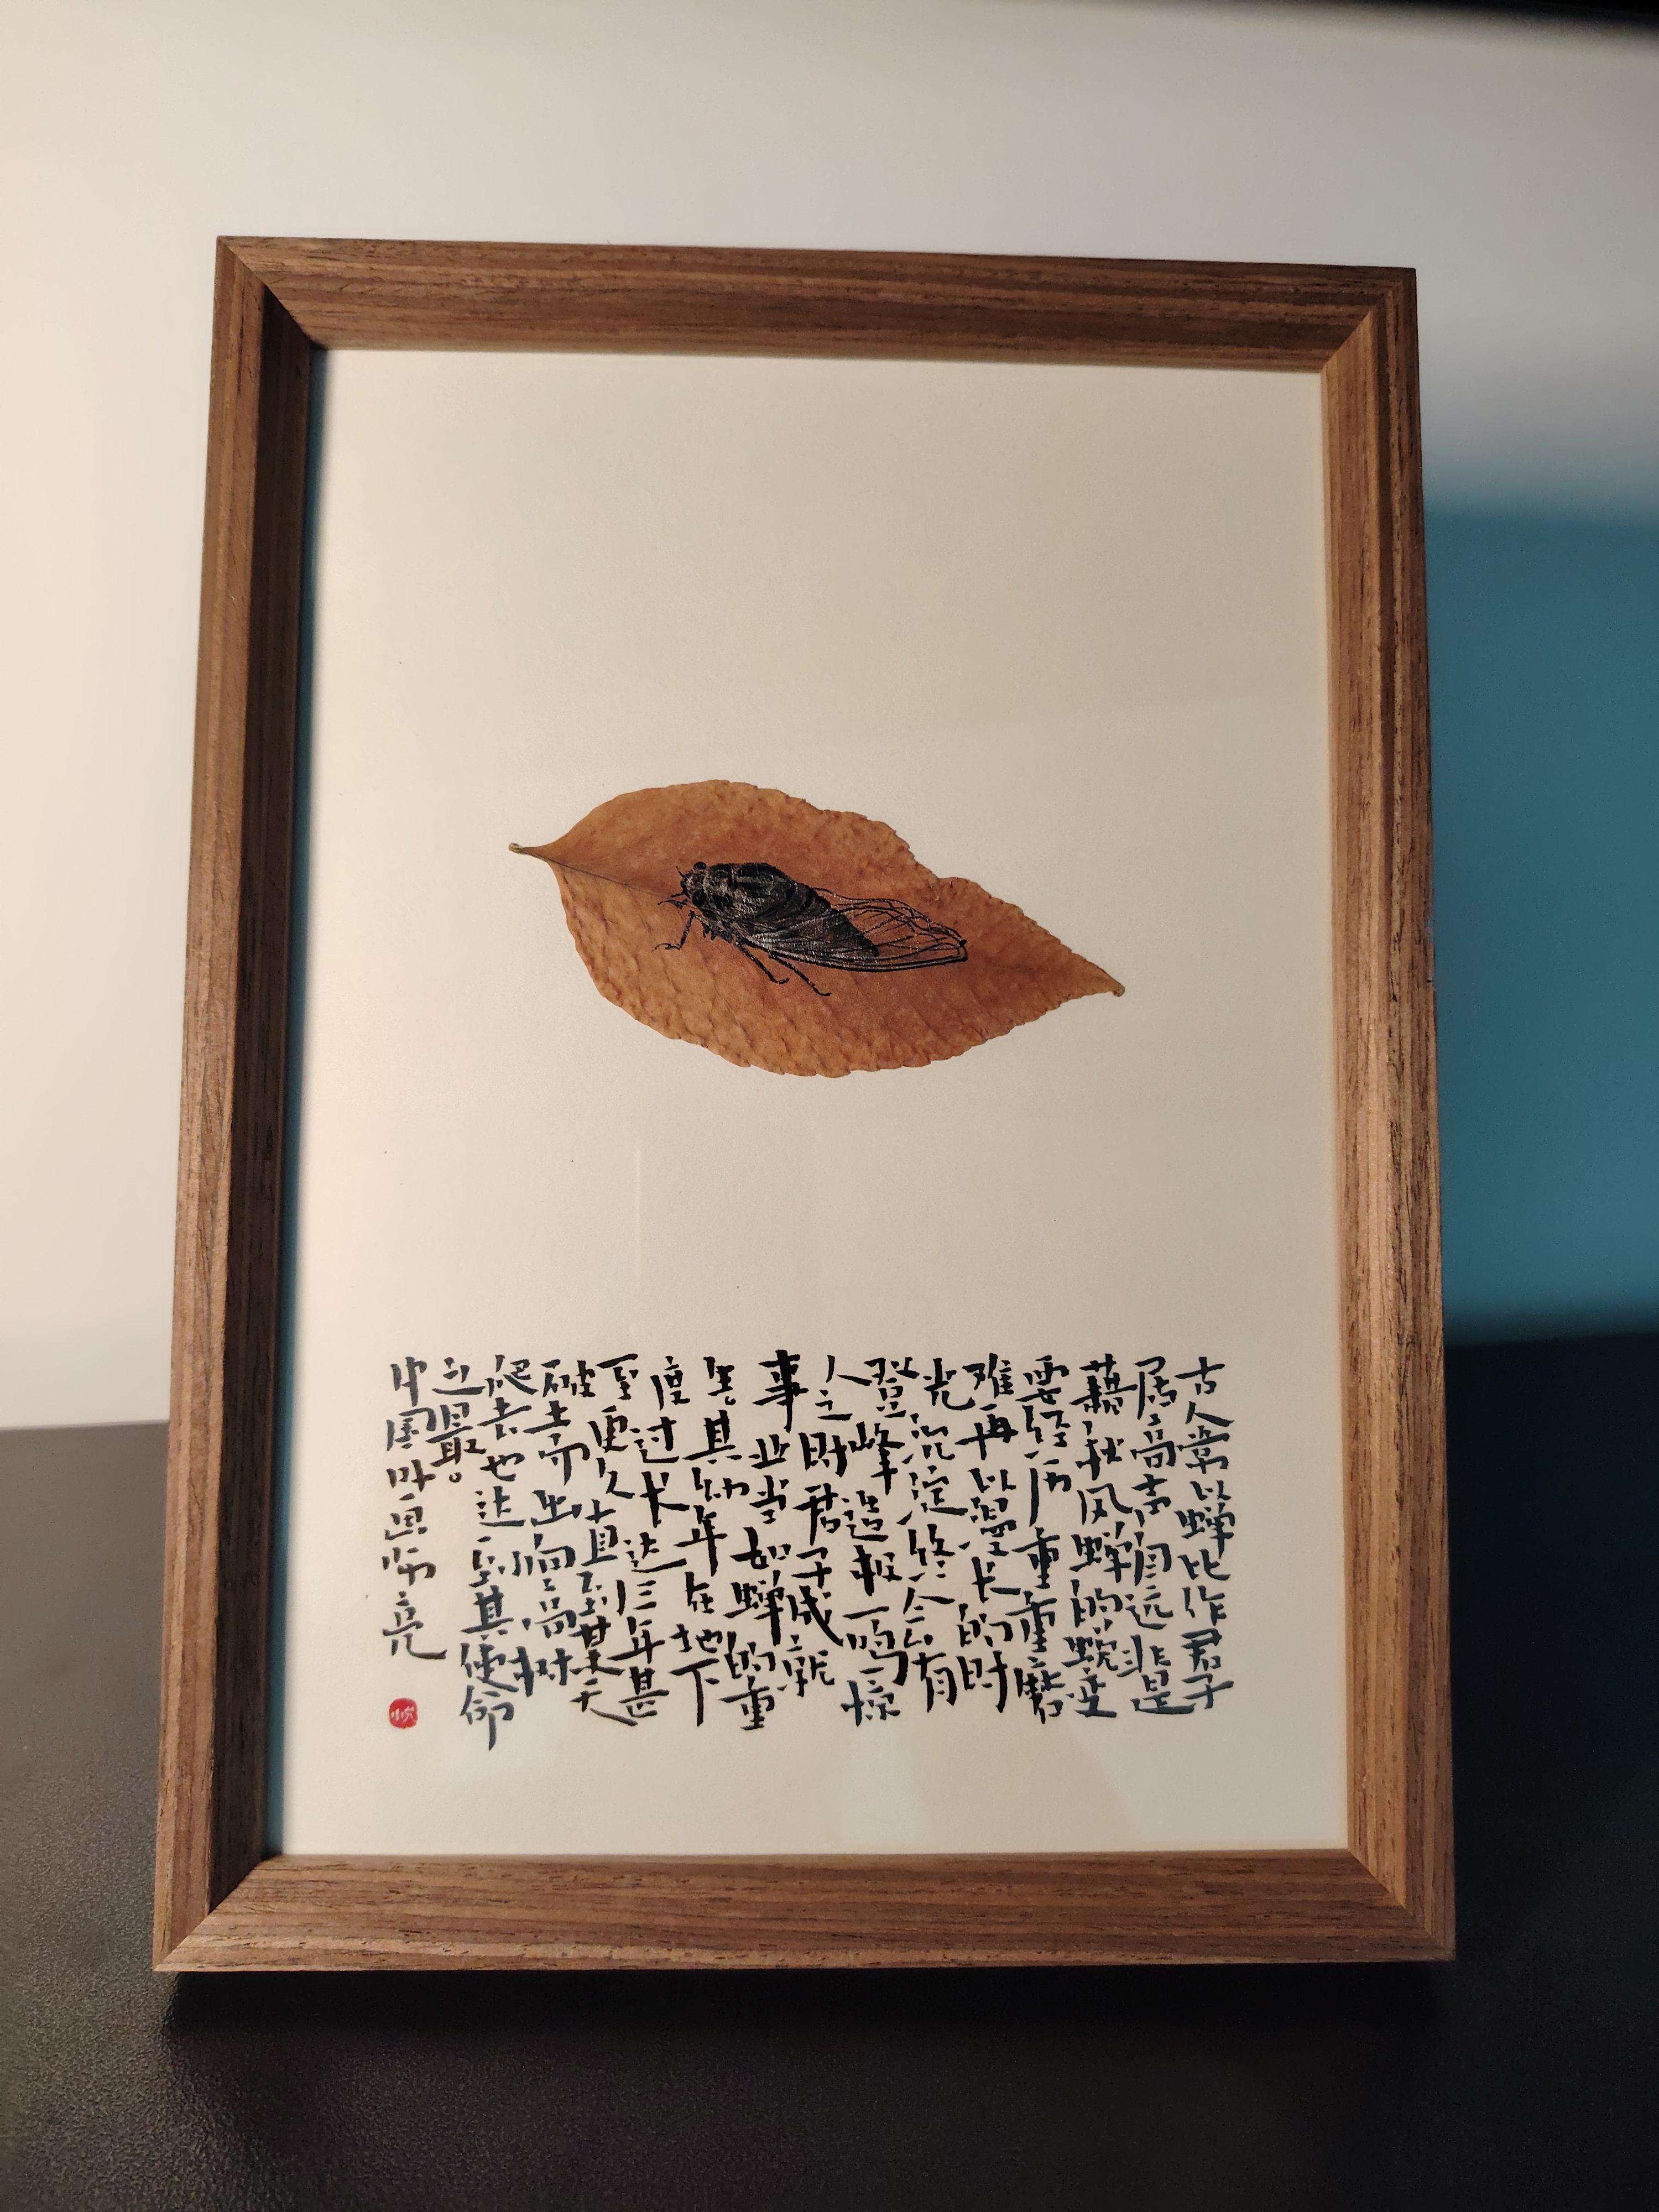 古人常以蝉比作君子
居高声自远非是
藉秋风蝉的蜕变
要经历重重磨
难再以漫长的时
光沉淀终会有
登峰造极一鸣惊
人之时君子成就
事业当如蝉的重
生。其幼年在地下
度过长达三年甚
至更久直到某天
破土而出向高树
爬去也达到其使命
之最。
中国叶画常亮